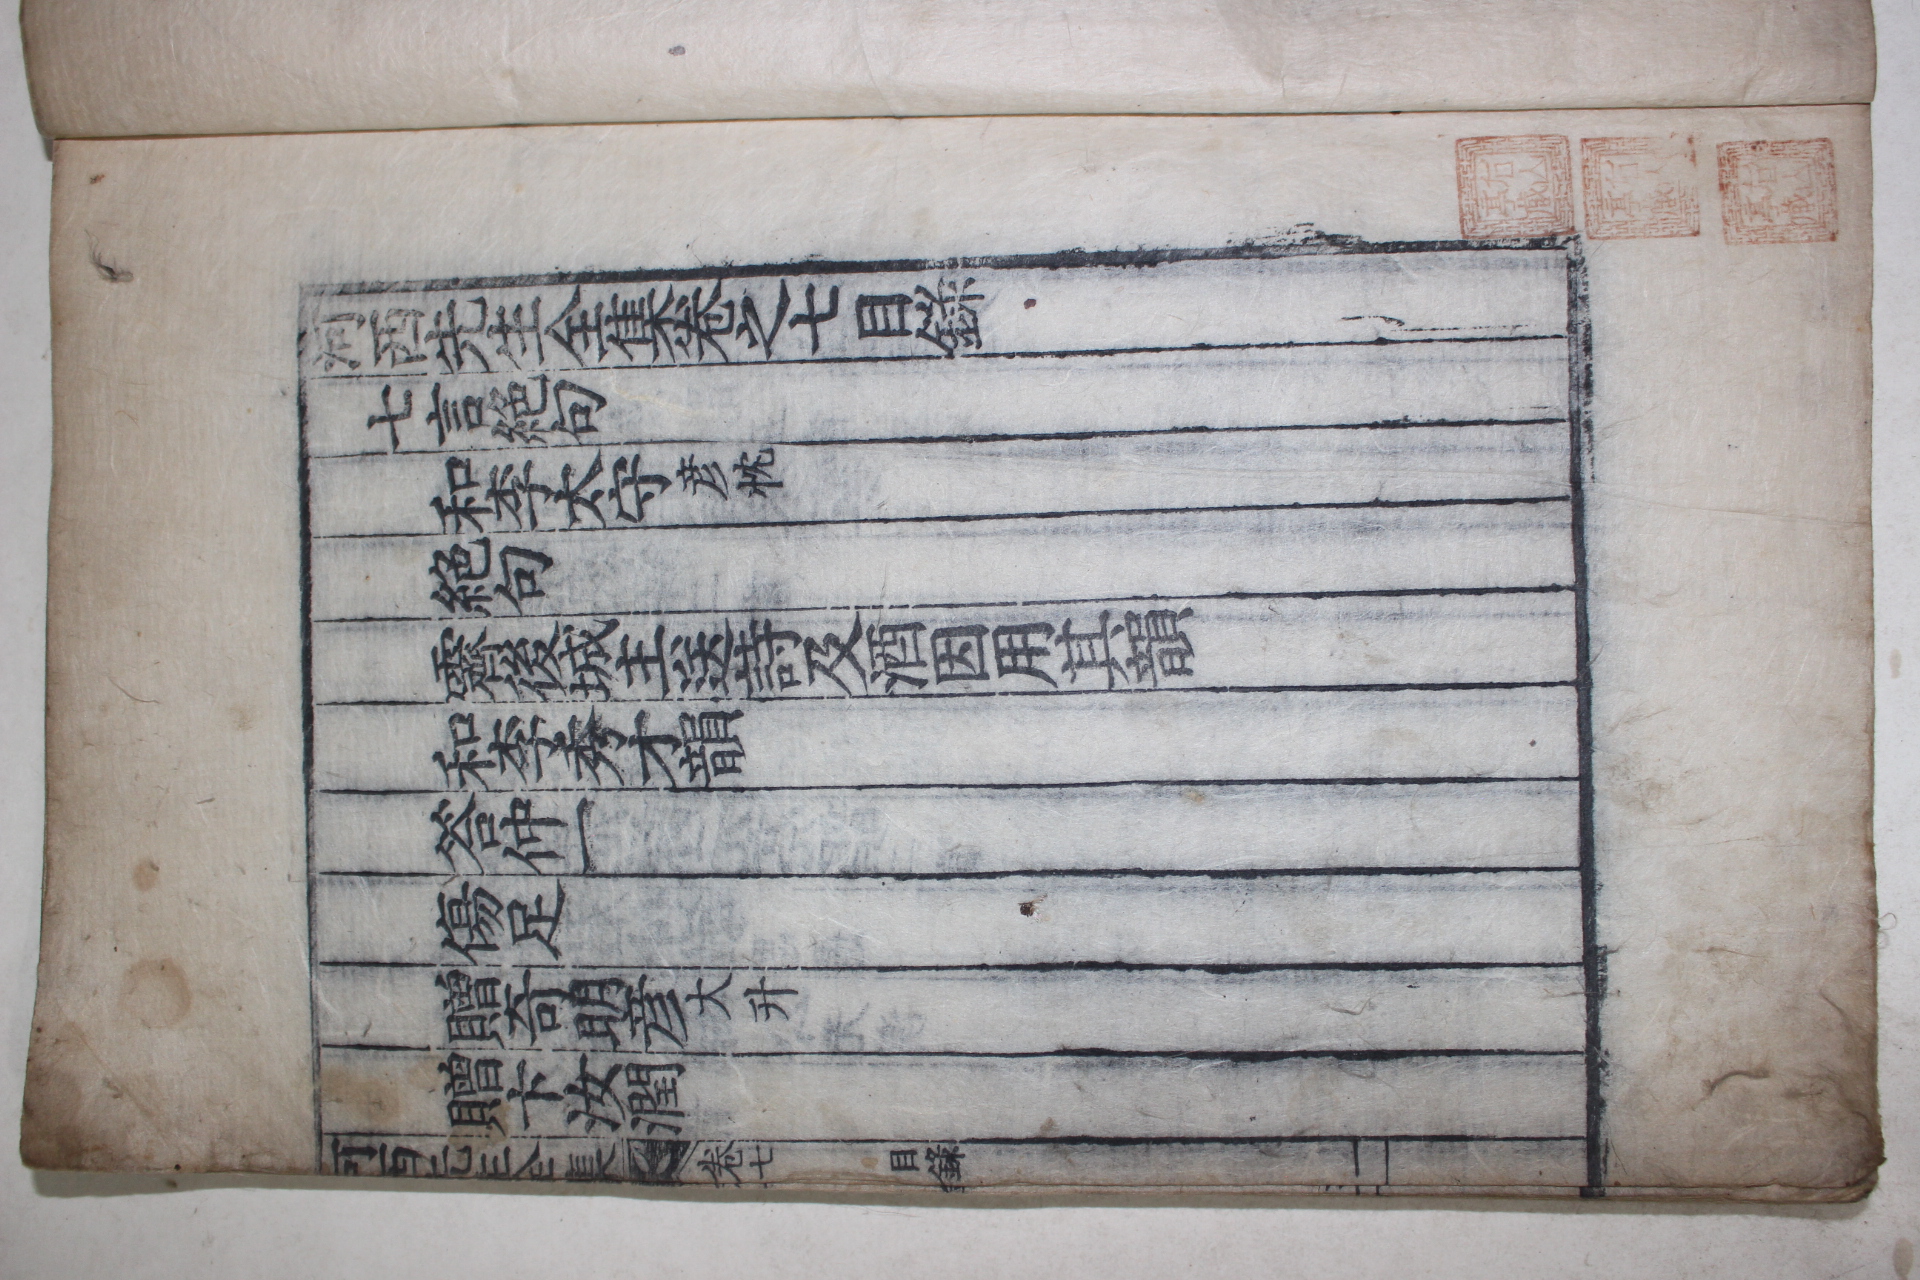 河西先生全集卷之七目錄
七言絶句
和李太守彦忱
絶句
霽後城主送詩及酒因用其韻
和李秀才韻
答仲一
傷足
贈奇明彦大升
贈卞汝潤
河西先生全集 卷七 目錄